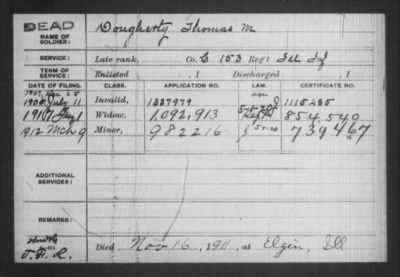 DEAD
NAME OF SOLDIER:
Dougherty Thomas M
SERVICE:
Late rank, Co. C 153 Reg't Ill Inf
TERM OF SERVICE:
Enlisted , 1 Discharged , 1
DATE OF FILING. CLASS. APPLICATION NO. LAW. CERTIFICATE NO.
1904 July 11 Invalid, 1337979 1115485
Aug 1 Widow, 1,092,913 854,540
1912 Mch 9 Minor, 982216 739467
ADDITIONAL SERVICES:
REMARKS:
Died Nov 16, 1911 at Elgin, Ill